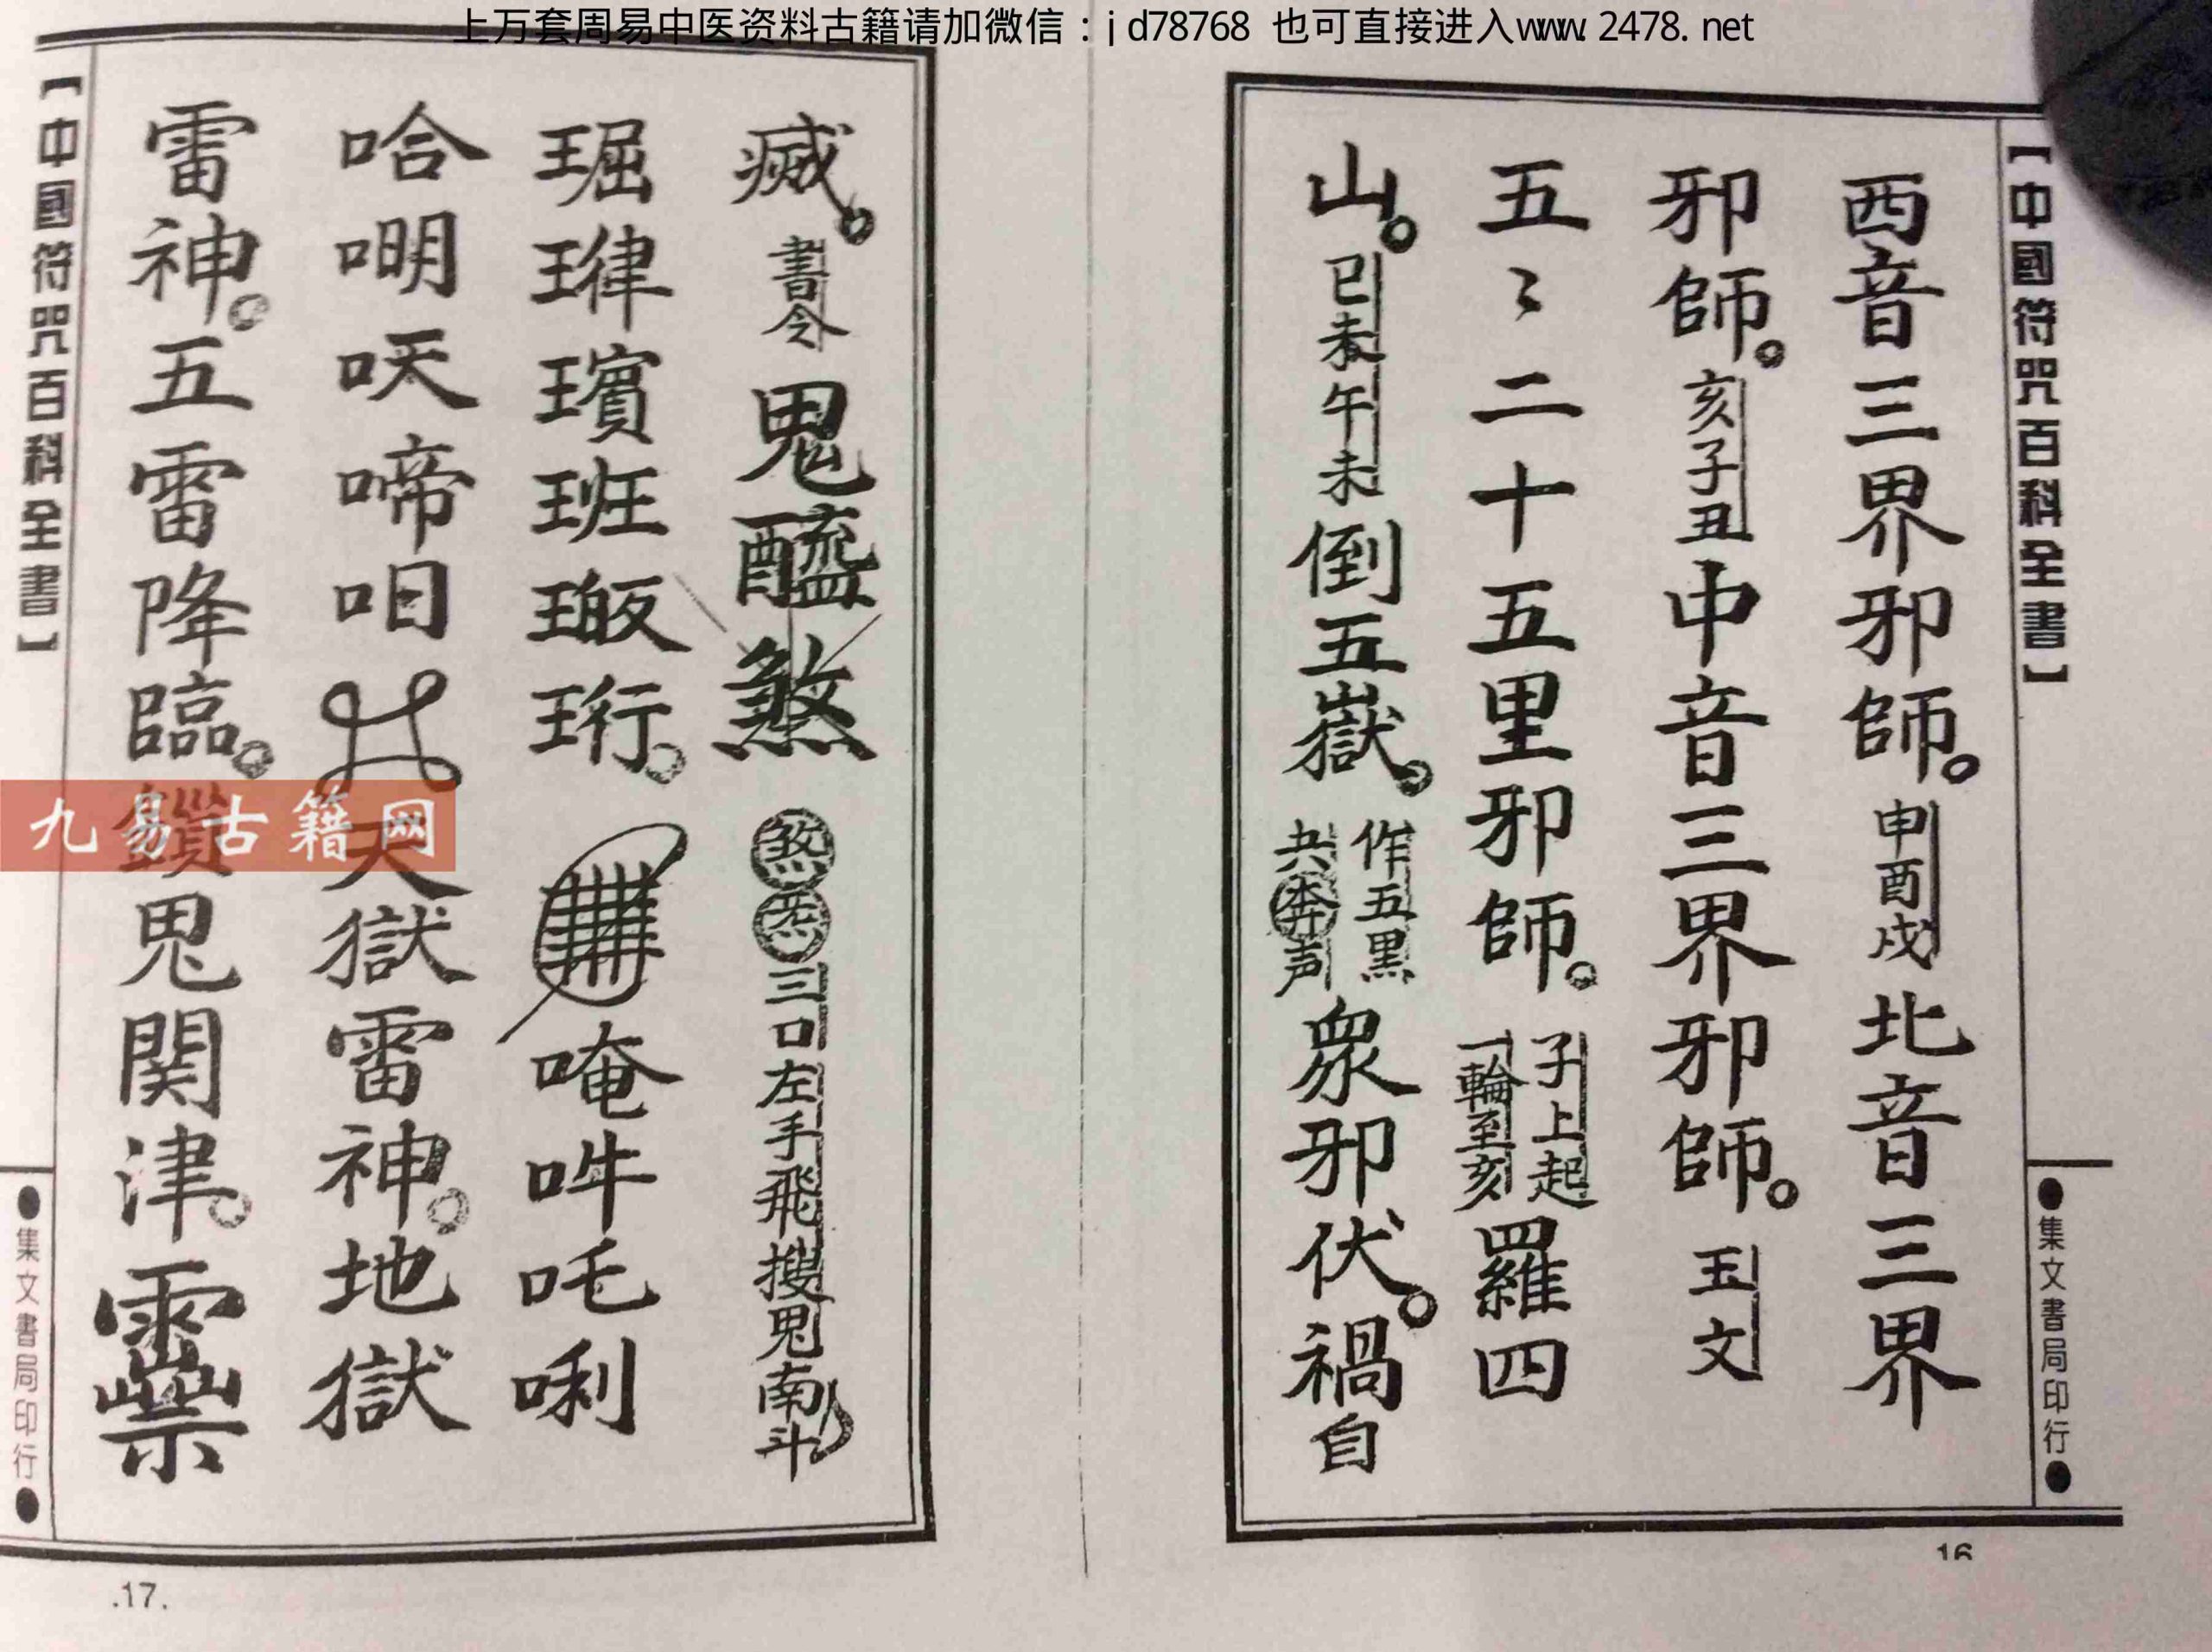 上万套周易中医资料古籍请加微信：jd78768 也可直接进入www.2478.net
【中國符咒百科全書】
●集文書局印行●
西音三界邪師。申酉戌北音三界
邪師。亥子丑中音三界邪師。玉文
五〻二十五里邪師。子上起一輪至亥羅四
山。巳未午未倒五嶽。作五黑共奔声眾邪伏。禍自
16
書令鬼
煞三口左手飛搜鬼南斗
班
唵吽吒唎
哈
啼
天獄雷神。地獄
雷神。五雷降臨。鎖鬼関津。
【中國符咒百科全書】
●集文書局印行●
.17.
九易古籍网